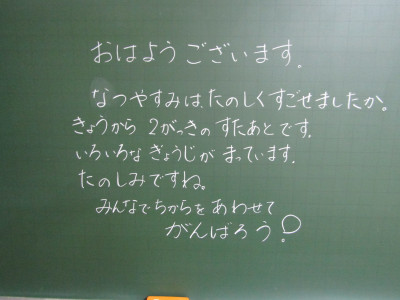 おはようございます。
なつやすみは、たのしくすごせましたか。
きょうから 2がっきの すたあとです。
いろいろな ぎょうじが まっています。
たのしみですね。
みんなでちからを あわせて
がんばろう!